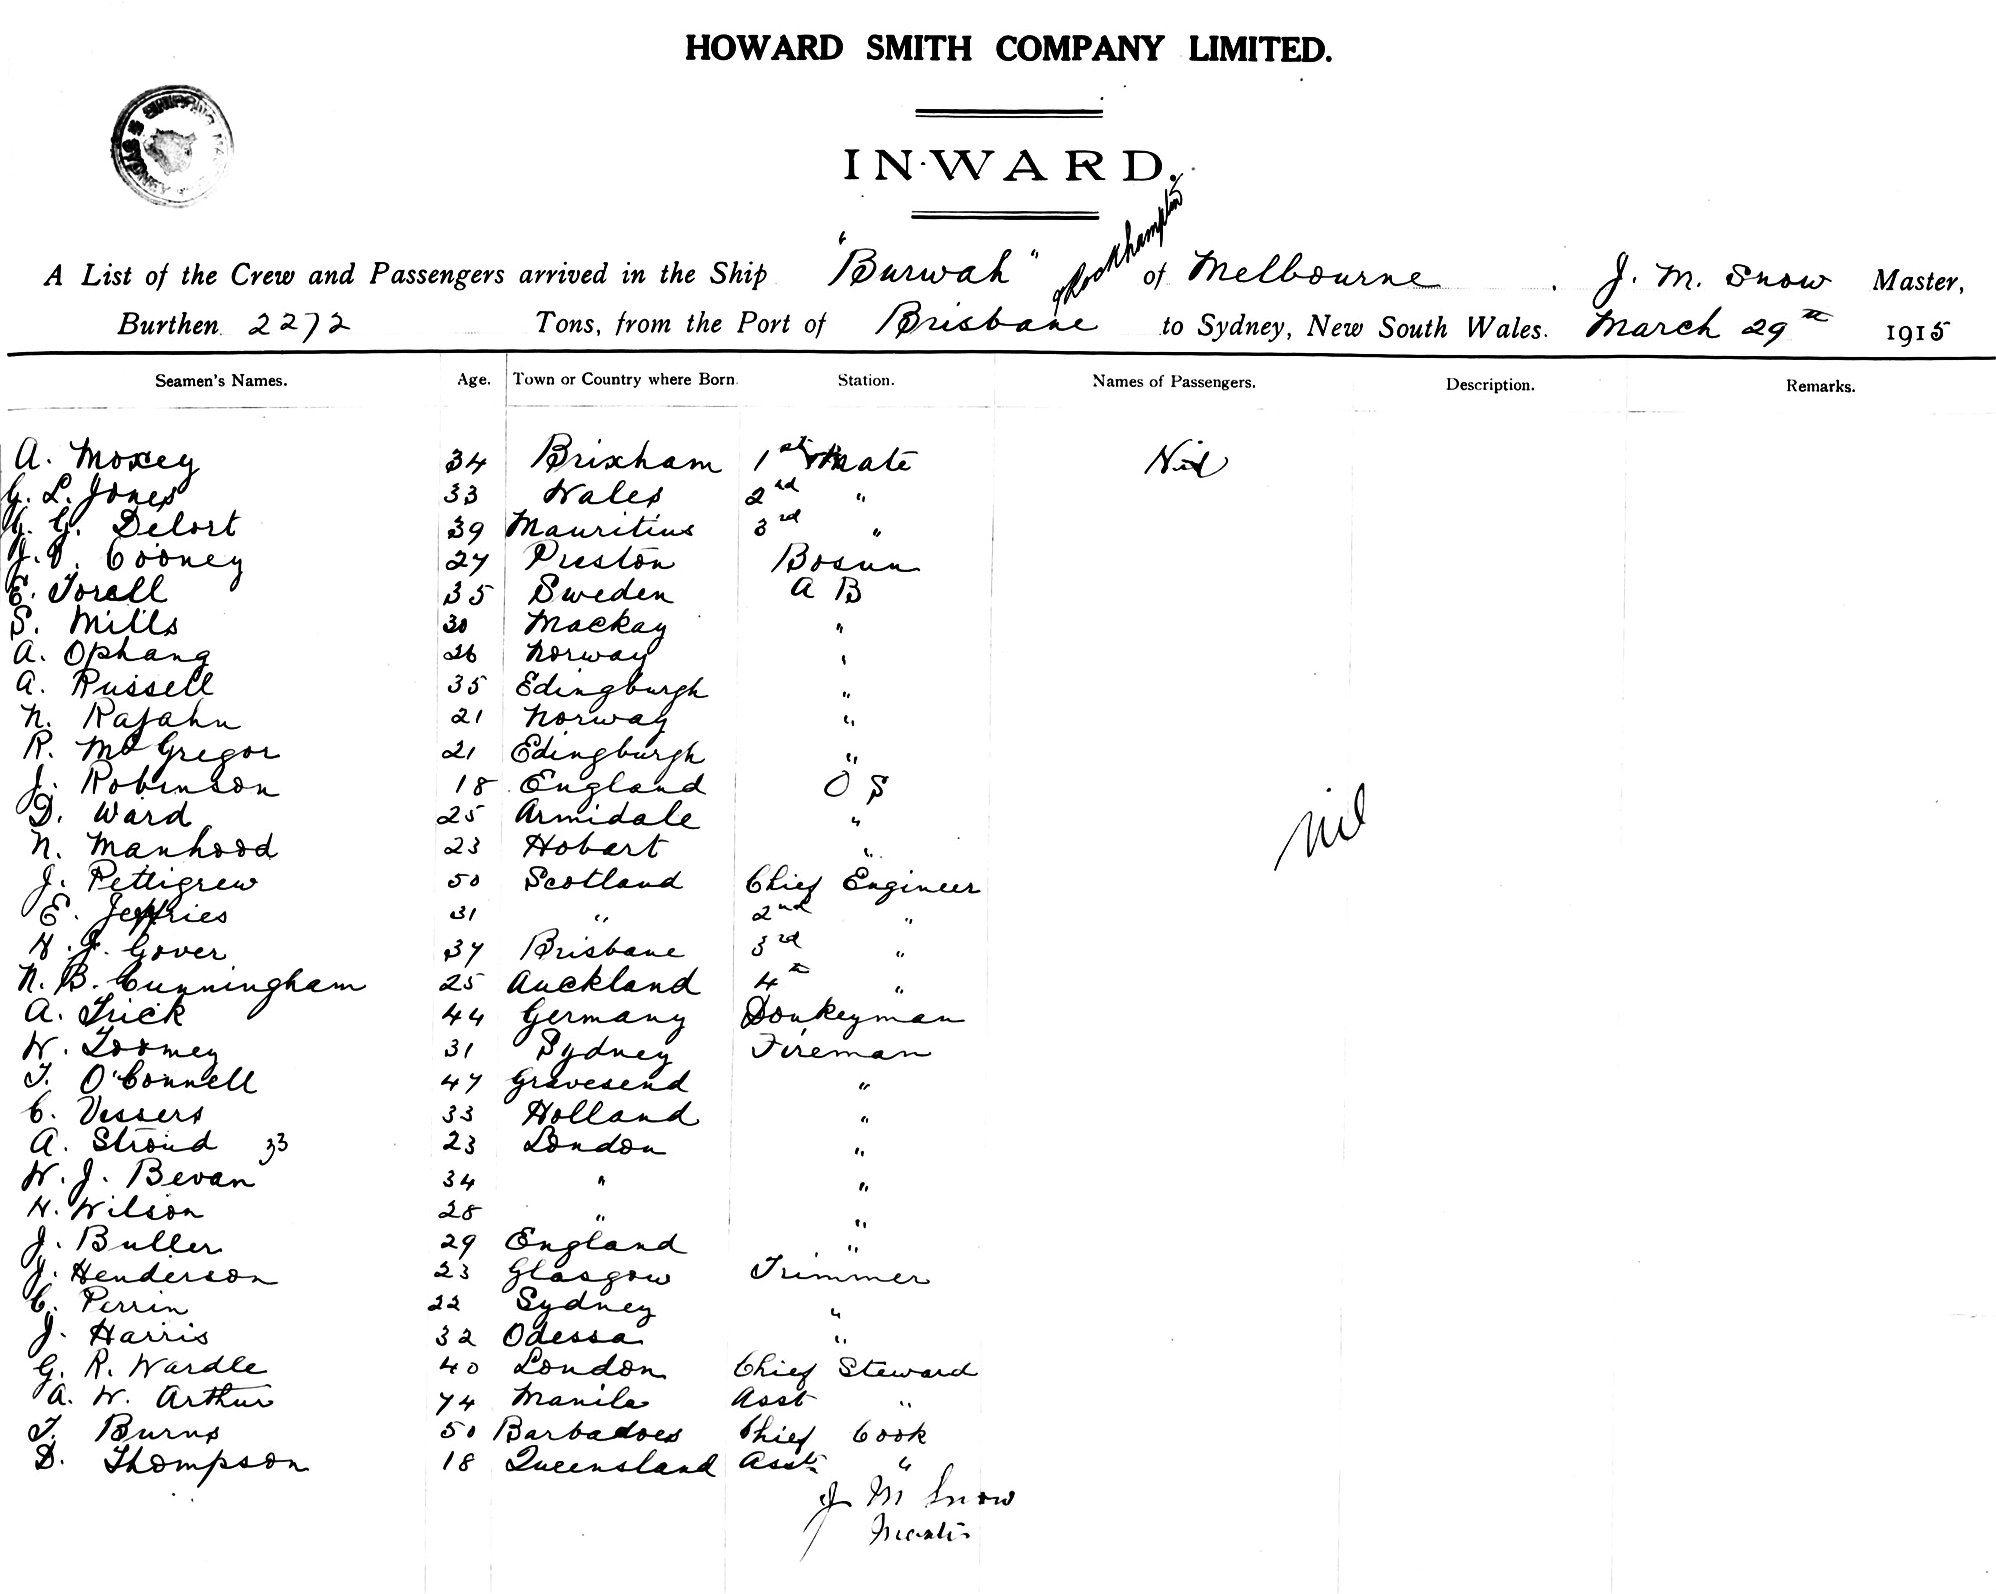 HOWARD SMITH COMPANY LIMITED.
SHIPPING
SYDNEY
INWARD.
& Rockhampton
A List of the Crew and Passengers arrived in the Ship "Burwah" of Melbourne J. M. Snow Master,
Burthen 2272 Tons, from the Port of Brisbane to Sydney, New South Wales. March 29th 1915
Seamen's Names. Age. Town or Country where Born. Station. Names of Passengers. Description. Remarks.
A. Moxey 34 Brixham 1st Mate Nil
G. L. Jones 33 Wales 2nd "
G. G. Delort 39 Mauritius 3rd "
Cooney 27 Preston Bosun
E. Torell 35 Sweden A B
S. Mills 30 Mackay "
A. Ophang 26 Norway "
A. Russell 35 Edingburgh "
N. Rafahn 21 Norway "
R. McGregor 21 Edingburgh "
J. Robinson 18 England O S
D. Ward 25 Armidale "
N. Manhood 23 Hobart "
nil
J. Pettigrew 50 Scotland Chief Engineer
E. Jeffries 31 " 2nd "
H. J. Gover 37 Brisbane 3rd "
N. B. Cunningham 25 Auckland 4th "
A. Frick 44 Germany Donkeyman
W. Toomey 31 Sydney Fireman
T. O'Connell 47 Gravesend "
C. Vissers 33 Holland "
A. Stroud 33 23 London "
W. J. Bevan 34 " "
H. Wilson 28 " "
J. Buller 29 England "
J. Henderson 23 Glasgow Trimmer
C. Perrin 22 Sydney "
J. Harris 32 Odessa "
G. R. Wardle 40 London Chief Steward
A. W. Arthur 74 Manila Asst "
T. Burns 50 Barbadoes Chief Cook
D. Thompson 18 Queensland Asst "
J M Snow
Master